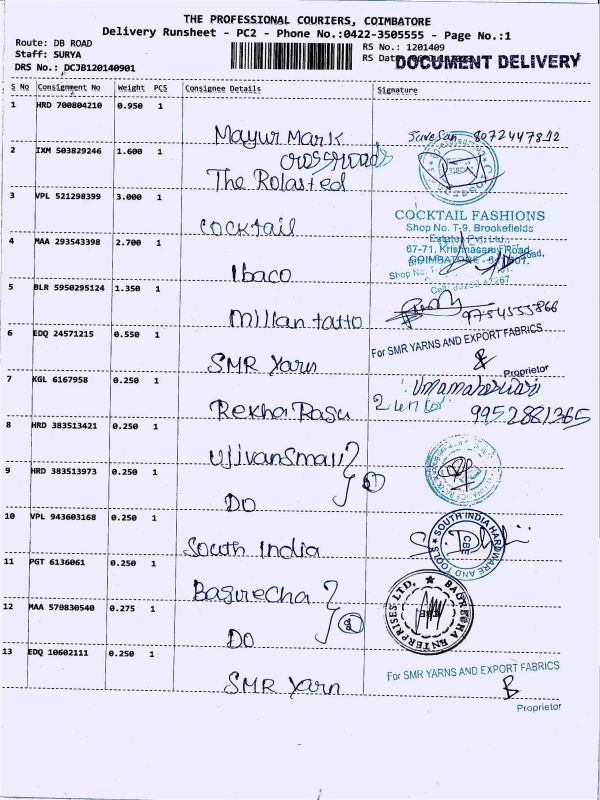 THE PROFESSIONAL COURIERS, COIMBATORE
Delivery Runsheet - PC2 - Phone No.:0422-3505555 - Page No.:1
Route: DB ROAD
Staff: SURYA
DRS No.: DCJB120140901
RS No.: 1201409
RS Dat
DOCUMENT DELIVERY
S No Consignment No Weight PCS Consignee Details Signature
1 HRD 700804210 0.950 1
Mayur Mark 8072447812
2 IXM 503829246 1.600 1
crossroads
The Rolasted
3 VPL 521298399 3.000 1
cocktail
COCKTAIL FASHIONS
Shop No. T-9, Brookefields
Estate Pvt. Ltd.,
67-71, Krishnasamy Road,
COIMBATORE
4 MAA 293543398 2.700 1
Ibaco
5 BLR 5950295124 1.350 1
Millan tatto 9754555866
6 EDQ 24571215 0.550 1
SMR Yarn
For SMR YARNS AND EXPORT FABRICS
Proprietor
7 KGL 6167958 0.250 1
Umamaheswari
Rekha Rasu 9952881365
8 HRD 383513421 0.250 1
UjivanSmall
9 HRD 383513973 0.250 1
DO
10 VPL 943603168 0.250 1
South India
SOUTH INDIA HARDWARE AND TOOLS
CBE
11 PGT 6136061 0.250 1
Bagrecha
BAGRECHA ENTERPRISES LTD.
CBE
12 MAA 570830540 0.275 1
DO
13 EDQ 10602111 0.250 1
SMR Yarn
For SMR YARNS AND EXPORT FABRICS
Proprietor